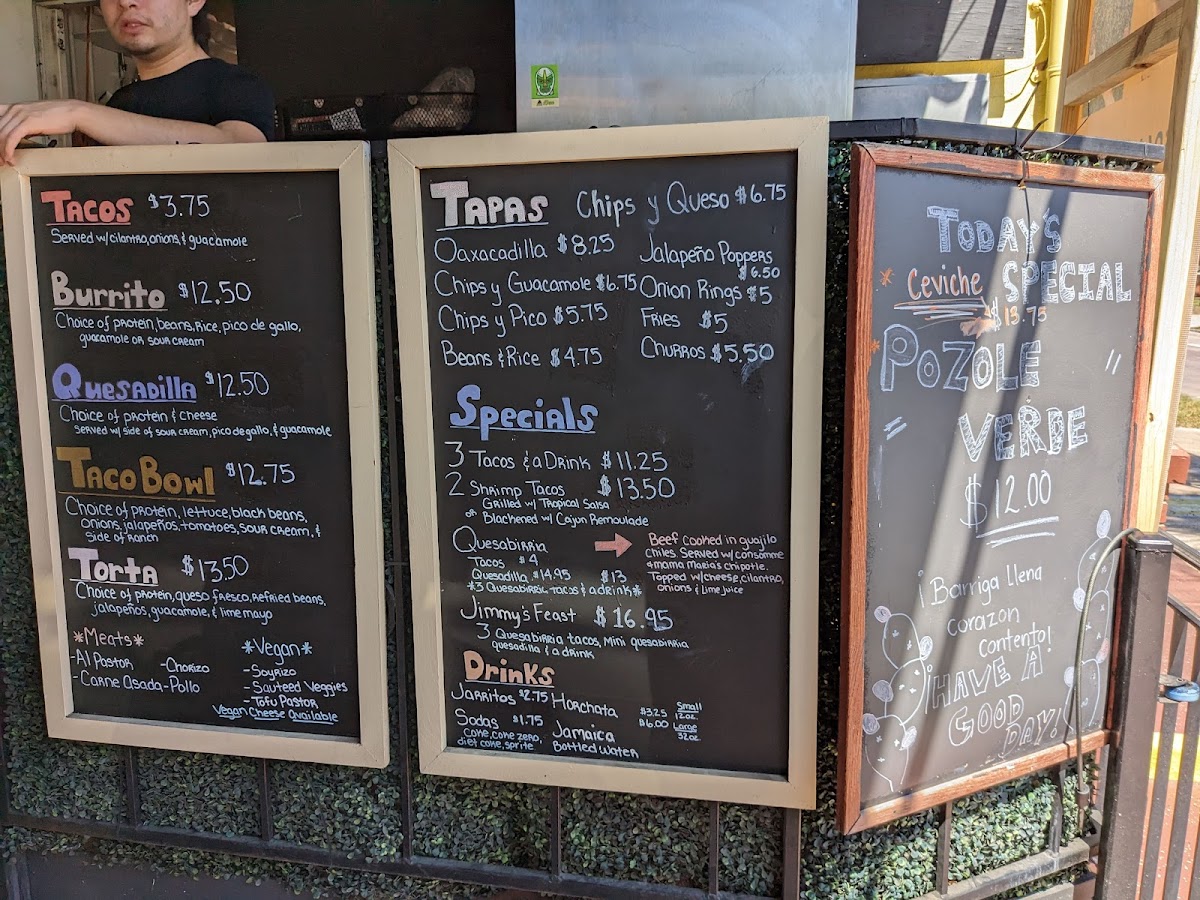 TACOS $3.75
Served w/cilantro, onions, & guacamole
Burrito $12.50
Choice of protein, beans, Rice, pico de gallo,
guacamole or sour cream
Quesadilla $12.50
Choice of protein & cheese
served w/ side of sour cream, pico de gallo, & guacamole
Taco Bowl $12.75
Choice of protein, lettuce, black beans,
onions, jalapeños, tomatoes, sour cream, &
side of Ranch
Torta $13.50
Choice of protein, queso fresco, Refried beans,
jalapeños, guacamole, & lime mayo
*Meats*
-Al Pastor -Chorizo
-Carne Asada -Pollo
*Vegan*
-Soyrizo
-Sauteed Veggies
-Tofu Pastor
Vegan Cheese Available
TAPAS
Chips y Queso $6.75
Oaxacadilla $8.25
Chips y Guacamole $6.75
Chips y Pico $5.75
Beans & Rice $4.75
Jalapeño Poppers
$6.50
Onion Rings $5
Fries $5
Churros $5.50
Specials
3 Tacos & a Drink $11.25
2 Shrimp Tacos $13.50
Grilled w/ Tropical Salsa
or Blackened w/ Cajun Remoulade
Quesabirria
Tacos $4
Quesadilla $14.95 $13
*3 Quesabirria Tacos & a drink*
Beef cooked in guajilo
chiles served w/consomme
& mama Maria's chipotle.
Topped w/cheese, cilantro,
onions & lime juice
Jimmy's Feast $16.95
3 Quesabirria tacos, Mini quesabirria
quesadilla & a drink
Drinks
Jarritos $2.75
Sodas $1.75
Coke, coke zero,
diet coke, sprite
Horchata
Jamaica
Bottled water
$3.25 Small
12oz.
$6.00 Large
32oz
TODAY'S
SPECIAL
Ceviche
$13.75
POZOLE
VERDE
$12.00
¡Barriga llena
corazon
contento!
HAVE A
GOOD
DAY!